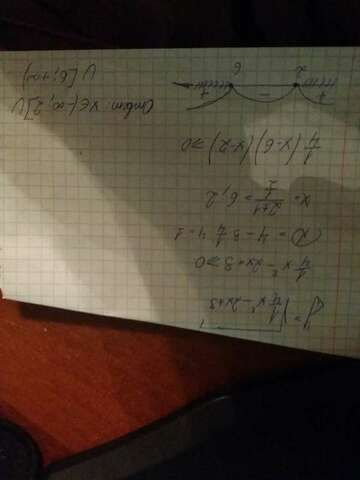 y = √(1/4 x² - 2x + 3)
1/4 x² - 2x + 3 ≥ 0
D = 4 - 3 1/4 4 = 1
x = (2±1)/(1/2) = 6, 2
1/4 (x-6)(x-2) ≥ 0
+ - +
2 6
Ответ: x∈(-∞; 2]∪
∪ [6; +∞)